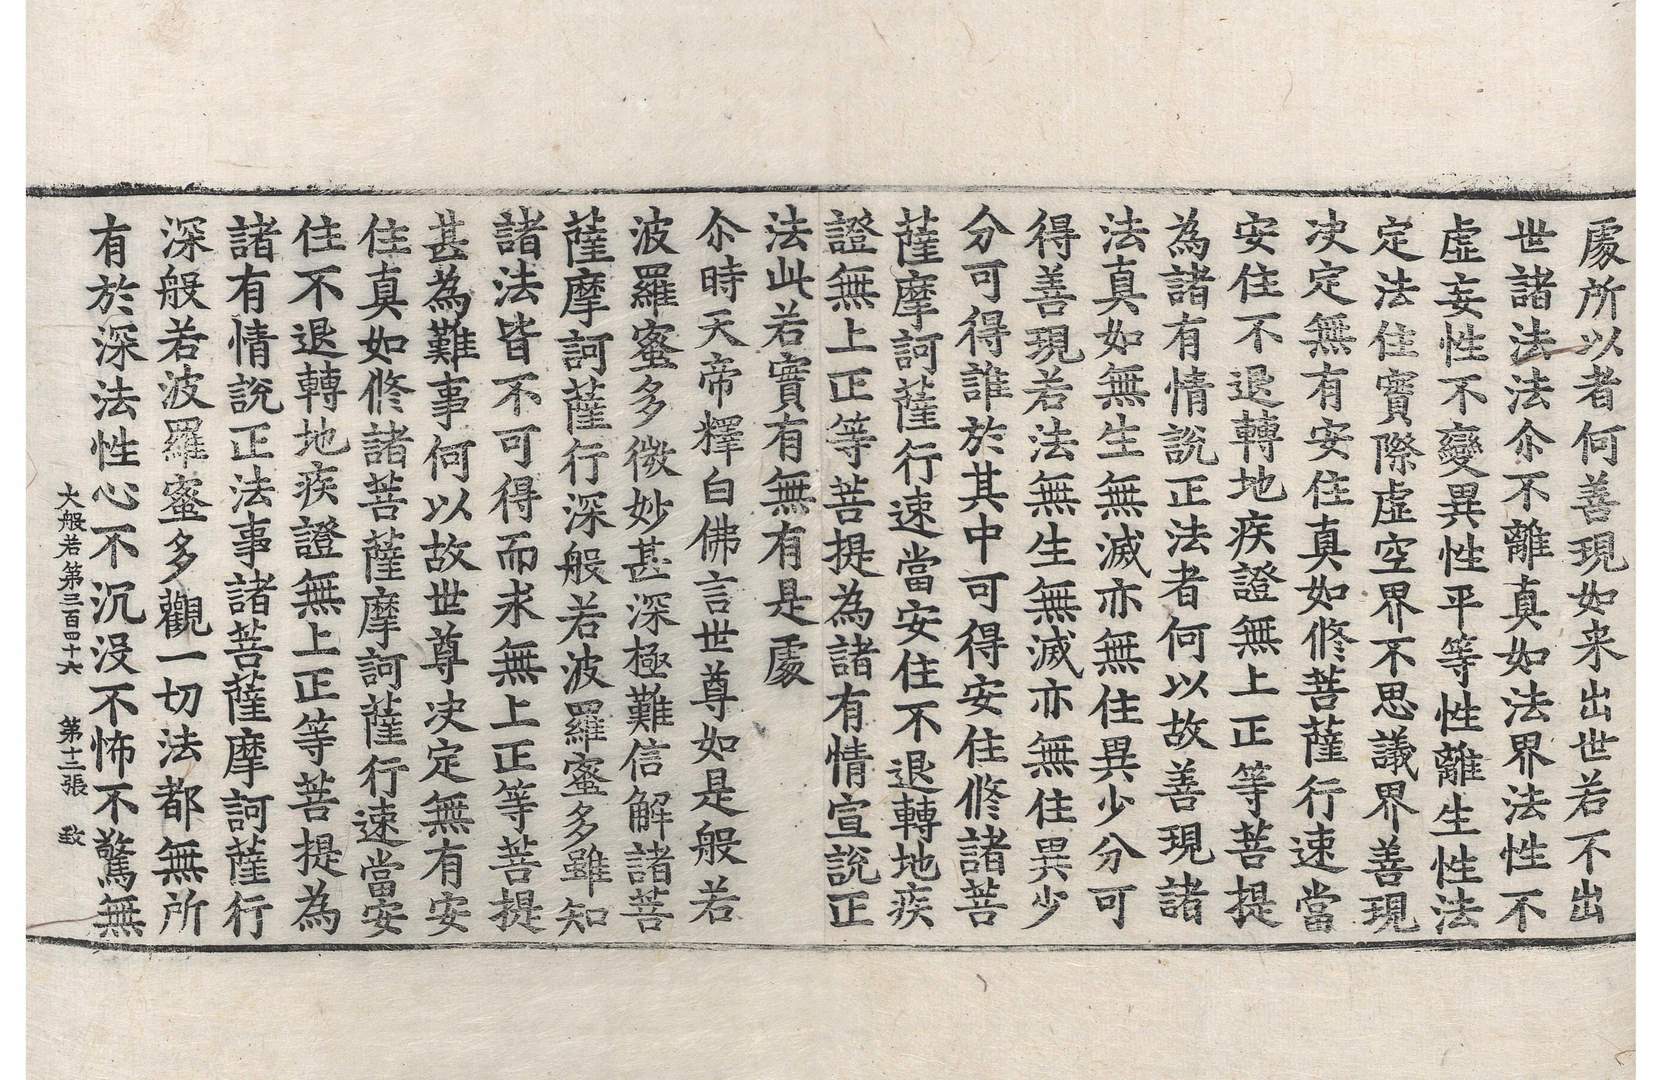 處所以者何善現如来出世若不出
世諸法法尒不離真如法界法性不
虛妄性不變異性平等性離生性法
定法住實際虛空界不思議界善現
决定無有安住真如修菩薩行速當
安住不退轉地疾證無上正等菩提
為諸有情說正法者何以故善現諸
法真如無生無滅亦無住異少分可
得善現若法無生無滅亦無住異少
分可得誰於其中可得安住修諸菩
薩摩訶薩行速當安住不退轉地疾
證無上正等菩提為諸有情宣說正
法此若實有無有是處
尒時天帝釋白佛言世尊如是般若
波羅蜜多微妙甚深極難信解諸菩
薩摩訶薩行深般若波羅蜜多雖知
諸法皆不可得而求無上正等菩提
甚為難事何以故世尊决定無有安
住真如修諸菩薩摩訶薩行速當安
住不退轉地疾證無上正等菩提為
諸有情說正法事諸菩薩摩訶薩行
深般若波羅蜜多觀一切法都無所
有於深法性心不沉没不怖不驚無
大般若第三百四十六 第十二張 致